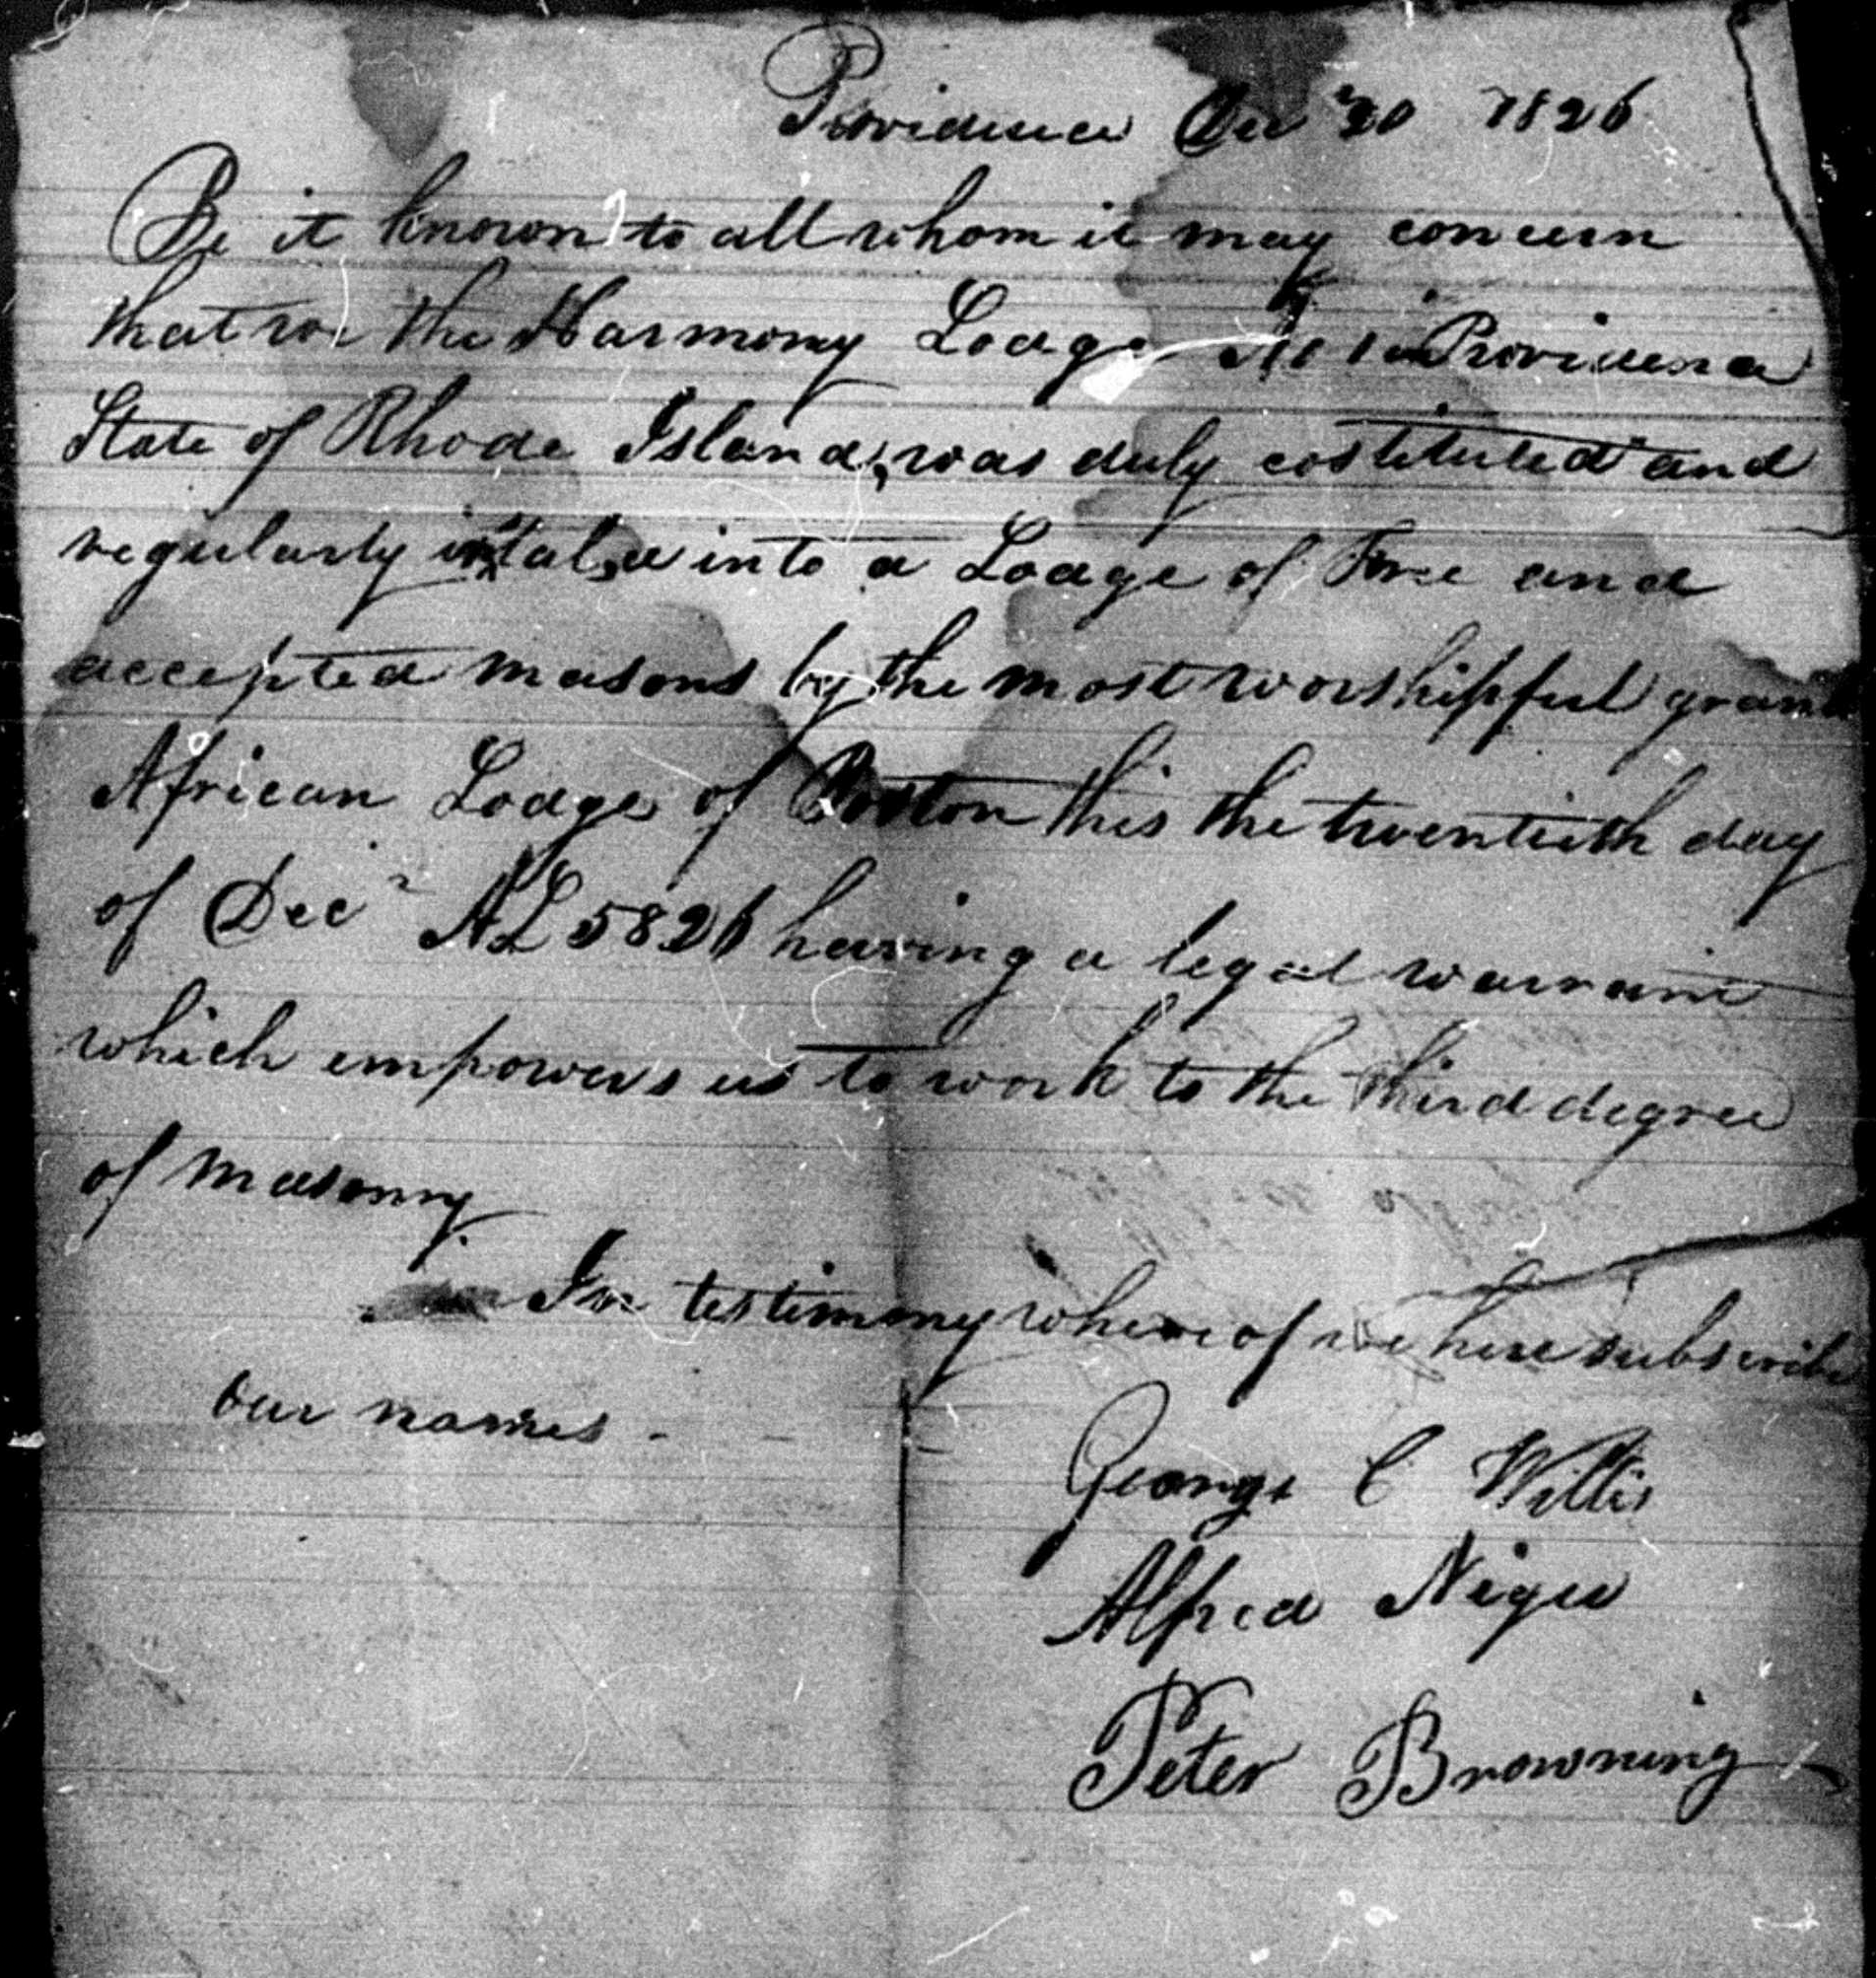 Providence Dec 20 1826
Be it known to all whom it may concern
that we the Harmony Lodge No 1 Providence
State of Rhode Island, was duly costituted and
regularly instaled into a Lodge of Free and
accepted masons by the most worshipful grand
African Lodge of Boston this the twentieth day
of Decr AL 5826 having a legal warrant
which empowers us to work to the third degree
of masonry
In testimony where of we here subscribe
our names -
George C Willis
Alfred Niger
Peter Browning